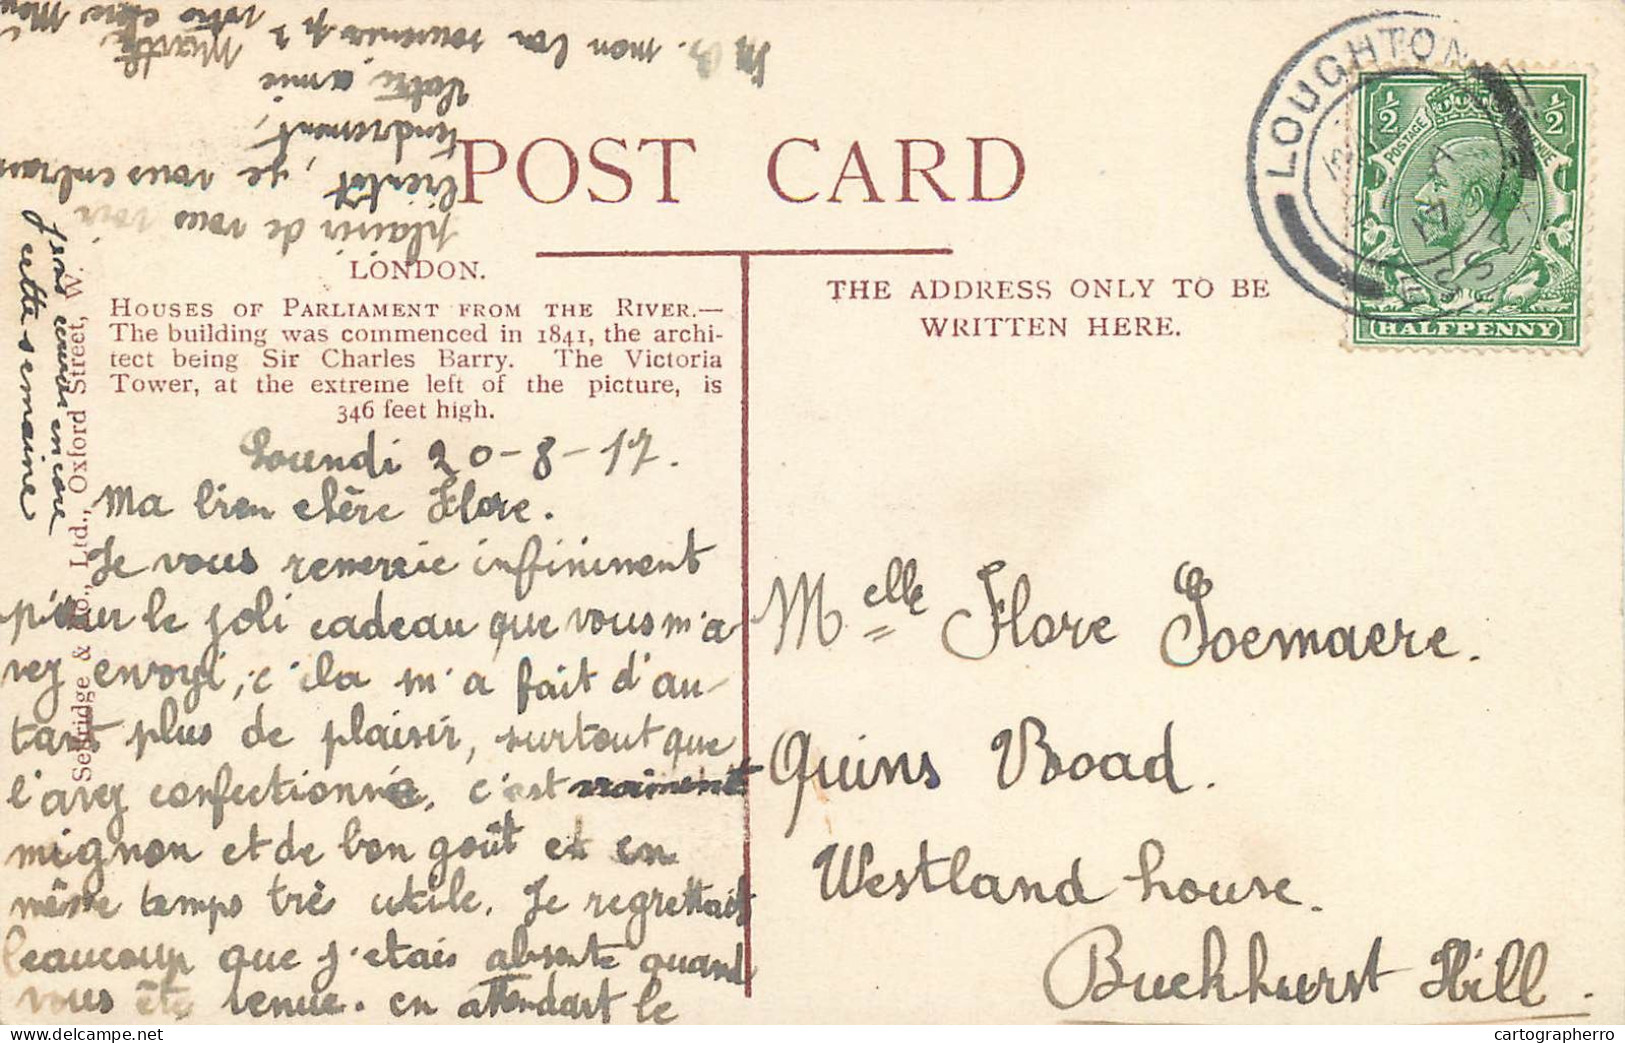 POST CARD
LONDON.
HOUSES OF PARLIAMENT FROM THE RIVER.—
The building was commenced in 1841, the archi-
tect being Sir Charles Barry. The Victoria
Tower, at the extreme left of the picture, is
346 feet high.
Selfridge & Co., Ltd., Oxford Street, W.
THE ADDRESS ONLY TO BE
WRITTEN HERE.
LOUGHTON
1/2 1/2
POSTAGE REVENUE
HALFPENNY
Lundi 20-8-17.
Ma bien chère Flore.
Je vous remercie infiniment
pour le joli cadeau que vous m'a
vez envoyé, cila m'a fait d'au-
tant plus de plaisir, surtout que
l'avez confectionné. c'est vraiment
mignon et de bon goût et en
même temps très utile. Je regrettais
beaucoup que j'etais absente quand
vous ête venue. en attendant le
plaisir de vous voir
bientôt, je vous embrasse
tendrement,
Votre amie
Marthe
mon bon souvenir p r votre chère
vous encore
cette semaine
Melle Flore Soemaere.
Quins Road.
Westland house.
Buckhurst Hill.
cartographerro